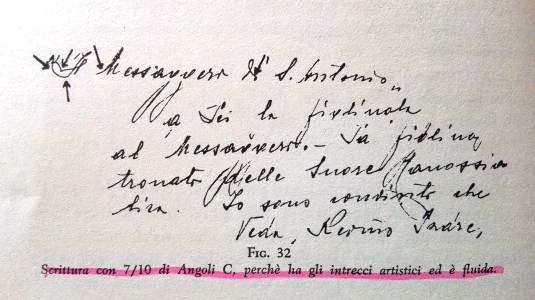 Il Messaggero di S. Antonio„
a Lei la figlinola
al Messaggero. — La figlina
tronato delle Suore Canossia
Io sono che
Veda, Padre,
FIG. 32
Scrittura con 7/10 di Angoli C, perchè ha gli intrecci artistici ed è fluida.